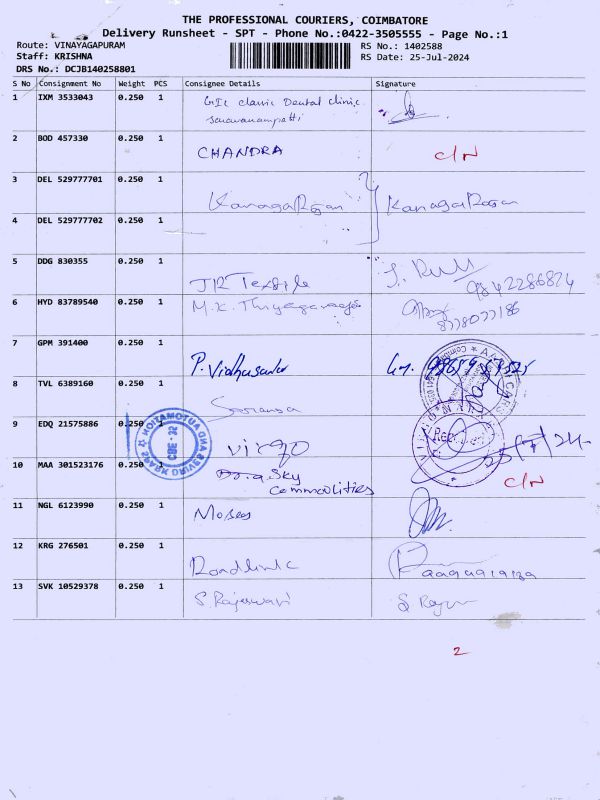 THE PROFESSIONAL COURIERS, COIMBATORE
Delivery Runsheet - SPT - Phone No.:0422-3505555 - Page No.:1
Route: VINAYAGAPURAM RS No.: 1402588
Staff: KRISHNA RS Date: 25-Jul-2024
DRS No.: DCJB140258801
S No Consignment No Weight PCS Consignee Details Signature
1 IXM 3533043 0.250 1 Dental clinic
2 BOD 457330 0.250 1 CHANDRA C/N
3 DEL 529777701 0.250 1 KanagaRajan KanagaRajan
4 DEL 529777702 0.250 1
5 DDG 830355 0.250 1 JR Textile
9842286824
6 HYD 83789540 0.250 1 M.K. Thiyagaraja
7 GPM 391400 0.250 1
8 TVL 6389160 0.250 1
9 EDQ 21575886 0.250 1 virgo 25/7/24
10 MAA 301523176 0.250 1 Sky C/N
commodities
11 NGL 6123990 0.250 1 Moses
12 KRG 276501 0.250 1 Roadlinks
13 SVK 10529378 0.250 1 S. Rajeswari
SPARK DRIVES AND AUTOMATION
CBE - 35
2